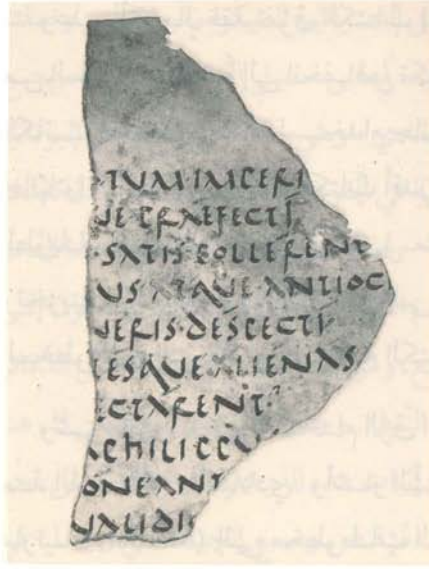 ·TUM·IMPERI
UE PRAEFECTI
·SATIS·POLLERENT
US ATQUE ANTIOC
UERIS·DESPECTI
ESQUE ALIENAS
ECTARENT·
PHILIPP
ONE ANT
UALIDIS